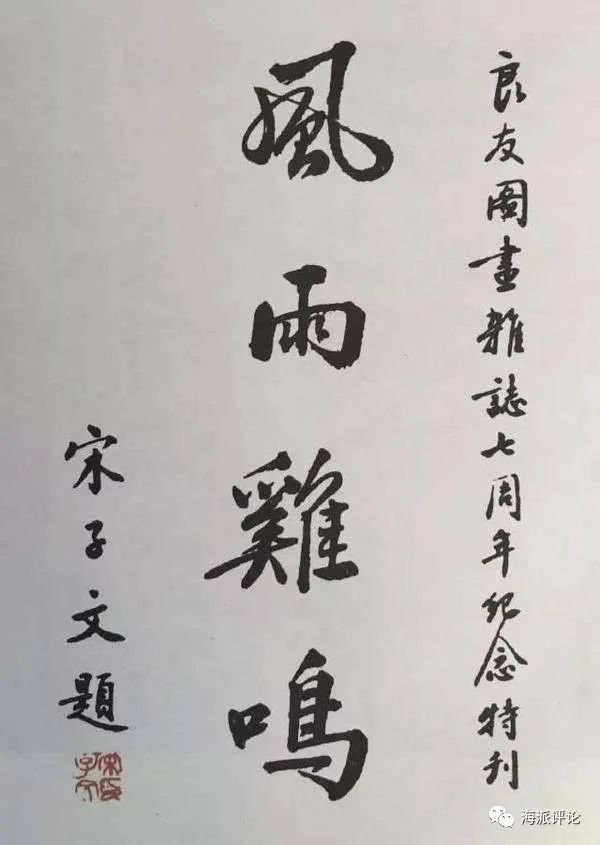 良友圖畫雜誌七周年纪念特刊
風雨雞鳴
宋子文題
海派评论